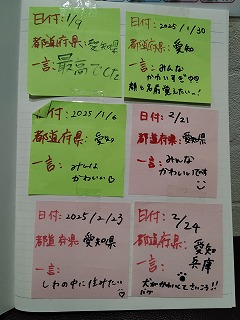 日付:1/9
都道府県:愛知県
一言:最高でした
日付:2025/1/30
都道府県:愛知
一言:みんな
かわいすぎ
顔と名前覚えたいっ!
日付:2025/1/6
都道府県:愛知
一言:みんな
かわいい♡
日付:2/21
都道府県:愛知県
一言:みんな
かわいいです
日付:2025/2/23
都道府県:愛知県
一言:
しわの中に住みたい♡
日付:2/24
都道府県:愛知
兵庫
一言:
犬がかわいくてさいこう!!